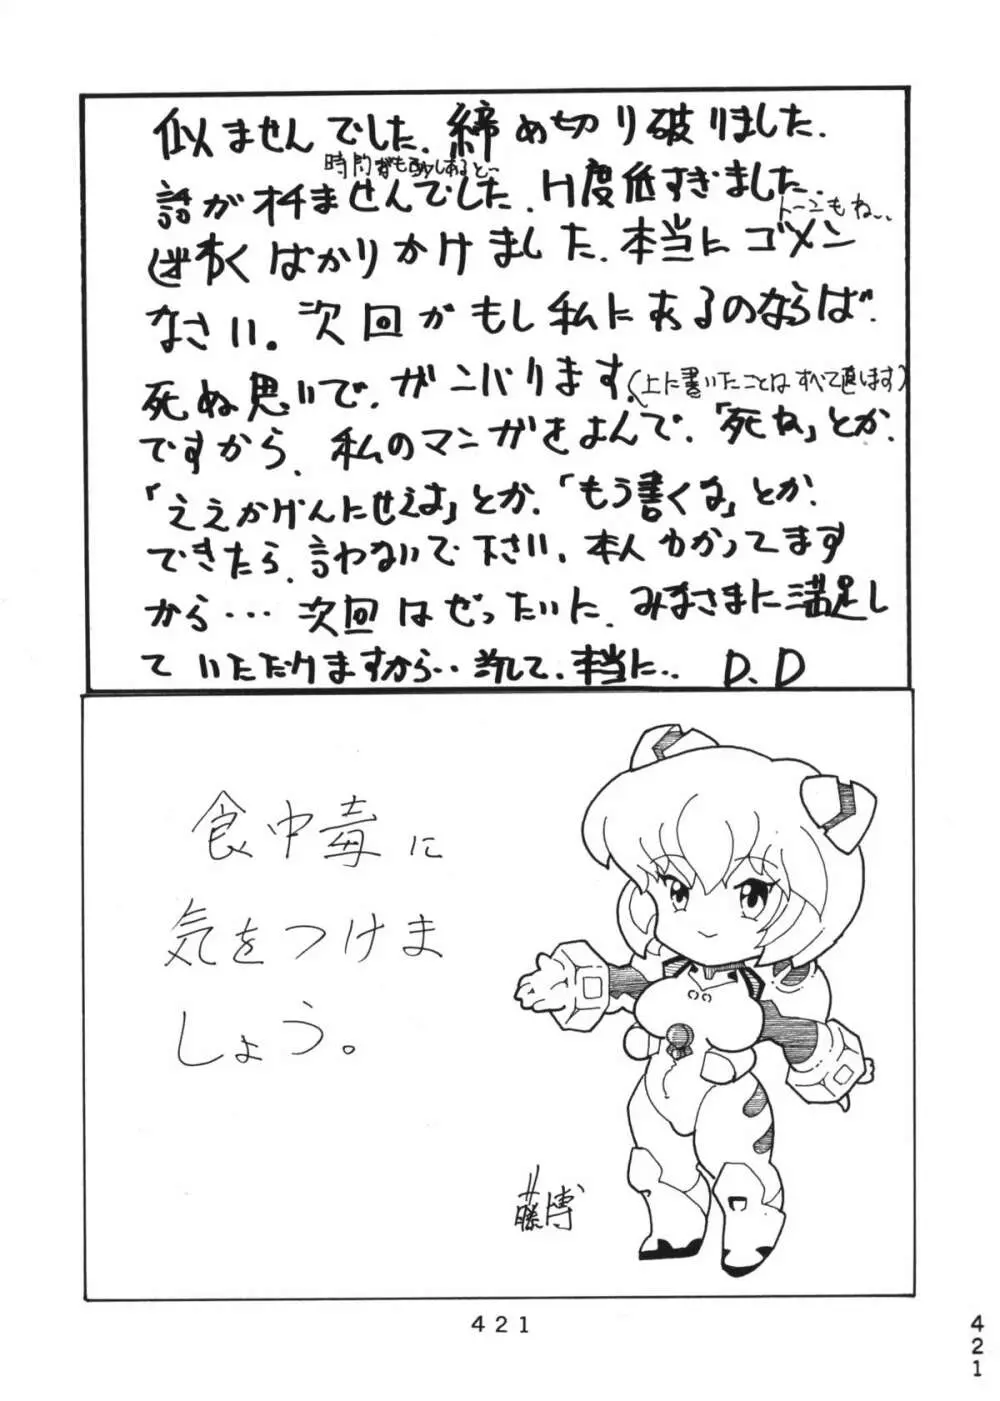 似ませんでした、締め切り破りました。
時間があると…
話がオチませんでした、H度低すぎました、
トーンもね…
迷わくばかりかけました。本当にゴメン
なさい。次回がもし私にあるのならば、
死ぬ思いで、ガンバります。(上に書いたことはすべて直します)
ですから、私のマンガをよんで、「死ね」とか、
「ええかげんにせえよ」とか、「もう書くな」とか、
できたら、言わないで下さい、本人わかってます
から…次回はぜったいに、みなさまに満足し
ていただけますから‥ 本当に‥ D.D
食中毒に
気をつけま
しょう。
藤博
421
421